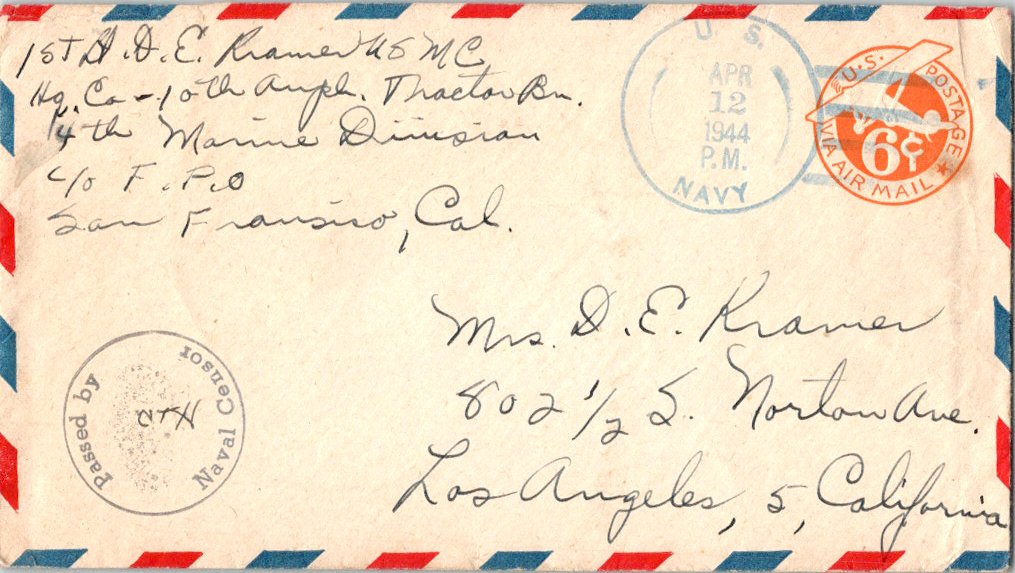 1st Lt. D. E. Kramer USMC
Hq. Co - 10th Amph. Tractor Bn.
4th Marine Division
c/o F.P.O
San Fransisco, Cal.
U.S.
APR
12
1944
P.M.
NAVY
U.S. POSTAGE
6¢
VIA AIR MAIL
Mrs. D. E. Kramer
802 1/2 S. Norton Ave.
Los Angeles, 5, California
Passed by
Naval Censor